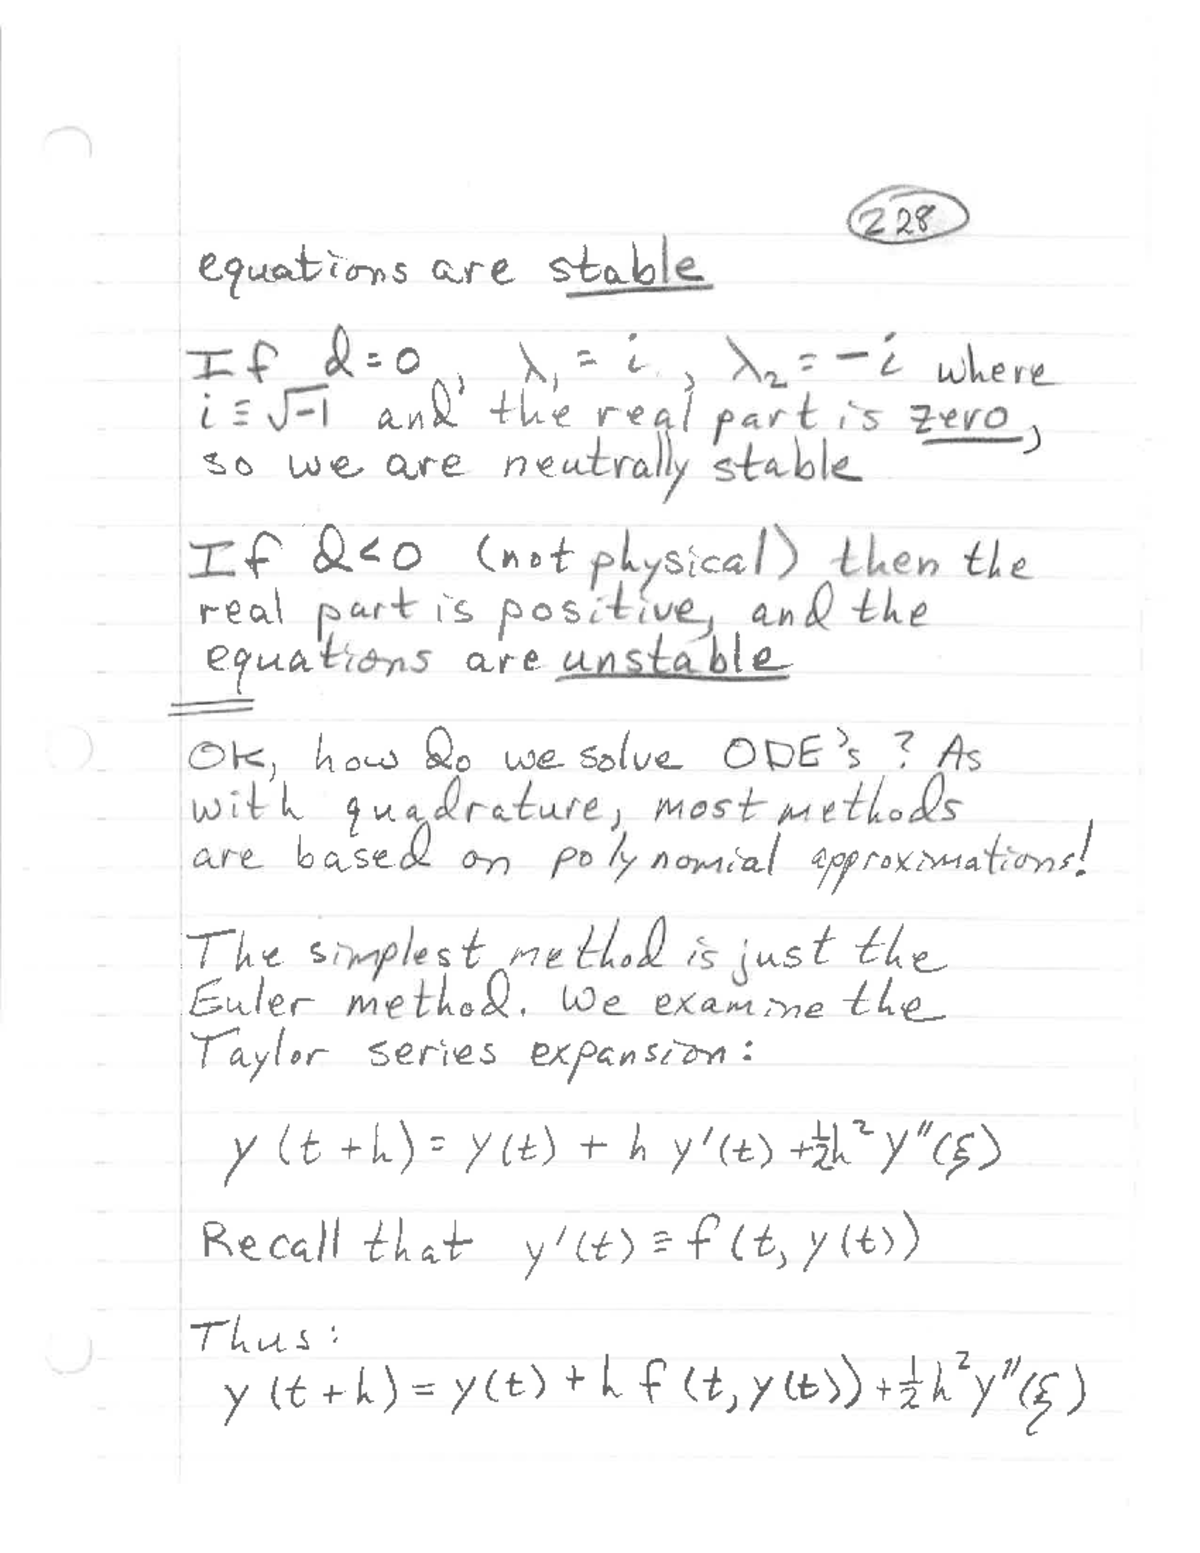 228
equations are stable
If d=0, λ₁ = i, λ₂ = -i where
i ≡ √-1 and the real part is zero,
so we are neutrally stable
If d<0 (not physical) then the
real part is positive, and the
equations are unstable
OK, how do we solve ODE's? As
with quadrature, most methods
are based on polynomial approximations!
The simplest method is just the
Euler method. We examine the
Taylor series expansion:
y(t+h) = y(t) + h y'(t) + ½h² y''(ξ)
Recall that y'(t) ≡ f(t, y(t))
Thus:
y(t+h) = y(t) + h f(t, y(t)) + ½ h² y''(ξ)